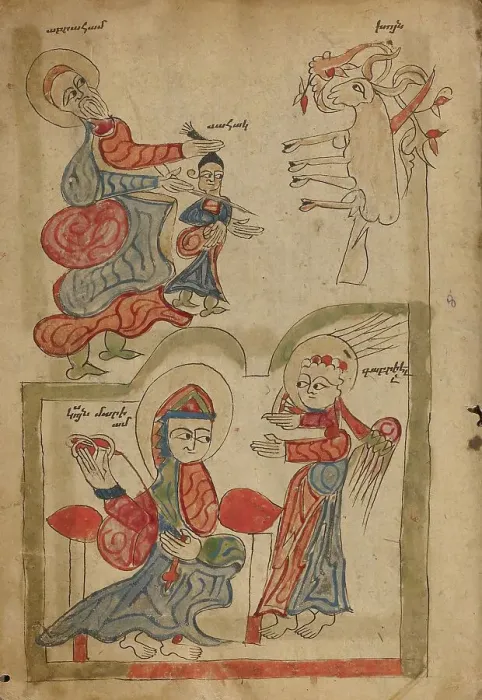 աբրահամ
խոյն
սահակ
գաբրիէ
լ
մարի
ամ